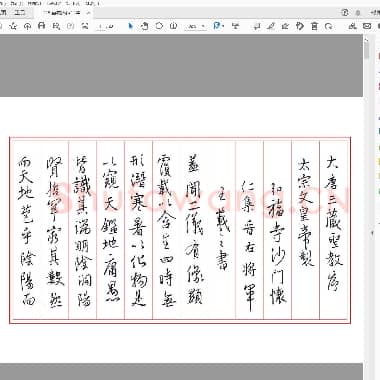 大唐三藏聖教序
太宗文皇帝製
弘福寺沙門懷
仁集晉右將軍
王羲之書
蓋聞二儀有像顯
覆載以含生四時無
形潛寒暑以化物是
以窺天鑑地庸愚
皆識其端明陰洞陽
賢哲罕窮其數然
而天地苞乎陰陽而
Shufawang.CN